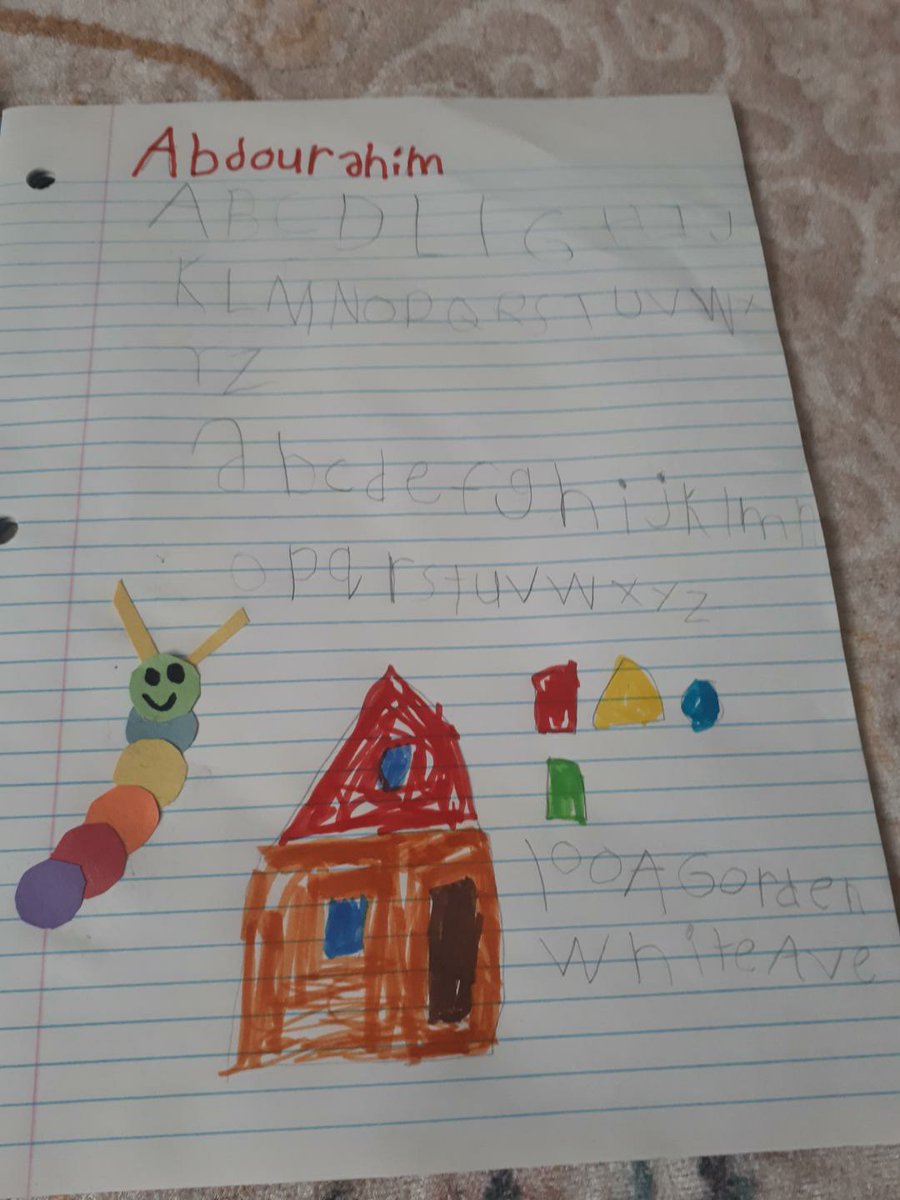 Abdourahim
A B C D L I G H I J
K L M N O P Q R S T U V W X
Y Z
a b c d e f g h i j k l m n
o p q r s t u v w x y z
100A Gorden
White Ave